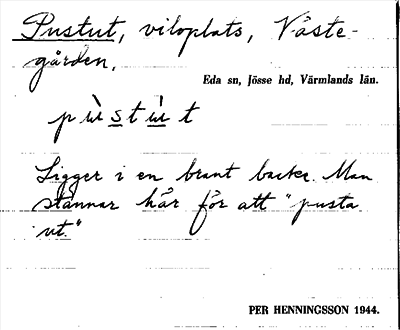 Pustut, viloplats, Väste-
gården.
Eda sn, Jösse hd, Värmlands län.
pùstù̀t
Ligger i en brant backe. Man
stannar här för att "pusta
ut."
PER HENNINGSSON 1944.